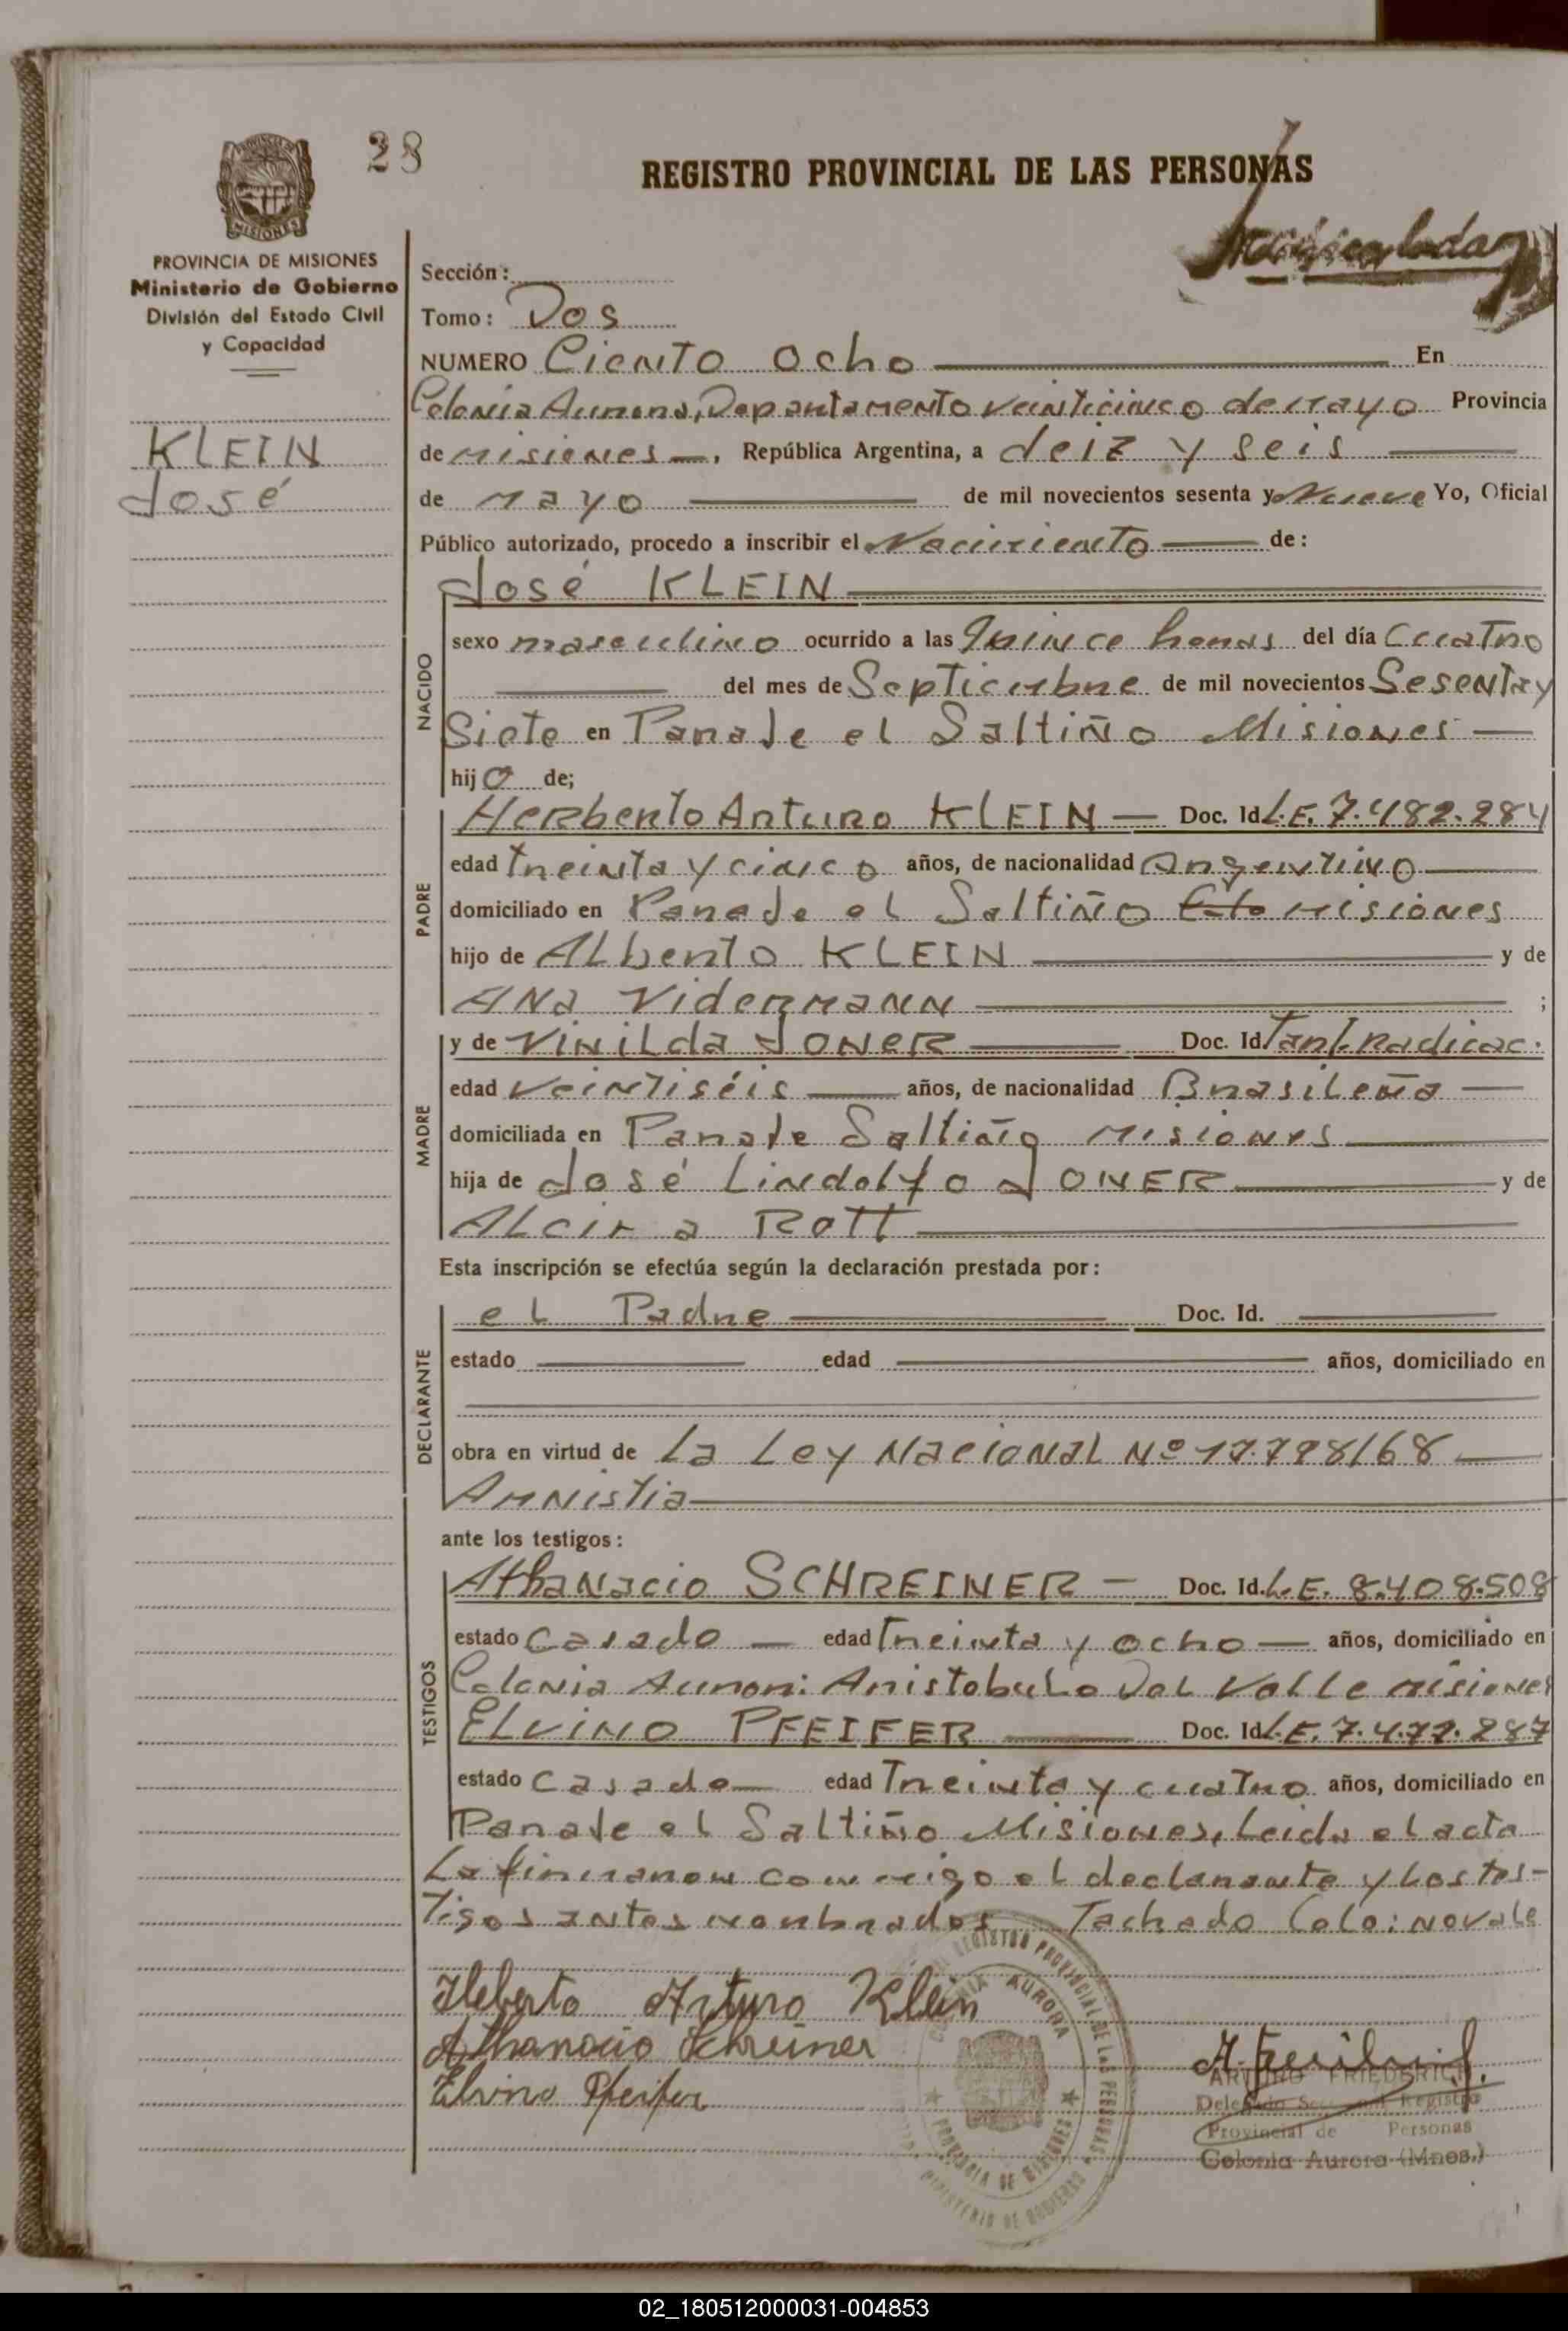 28
REGISTRO PROVINCIAL DE LAS PERSONAS
MISIONES
PROVINCIA DE MISIONES
Ministerio de Gobierno
División del Estado Civil
y Capacidad
KLEIN
José
Sección:
Tomo: Dos
NUMERO Ciento Ocho En
Colonia Aurora, Departamento veinticinco de mayo Provincia
de misiones, República Argentina, a deiz y seis
de mayo de mil novecientos sesenta y Nueve Yo, Oficial
Público autorizado, procedo a inscribir el Nacimiento de:
José KLEIN
NACIDO
sexo masculino ocurrido a las Quince horas del día Cuatro
del mes de Septiembre de mil novecientos Sesenta y
Siete en Paraje el Saltiño Misiones
hijo de;
PADRE
Herberto Arturo KLEIN Doc. Id L.E. 7.482.284
edad treinta y cinco años, de nacionalidad Argentino
domiciliado en Paraje el Saltiño misiones
hijo de Alberto KLEIN y de
Ana Vidermann ;
MADRE
y de Vinilda JONER Doc. Id Tarj. Radicac.
edad veintiséis años, de nacionalidad Brasileña
domiciliada en Paraje Saltiño misiones
hija de José Lindolfo JONER y de
Alcira Rott
Esta inscripción se efectúa según la declaración prestada por:
DECLARANTE
el Padre Doc. Id.
estado edad años, domiciliado en
obra en virtud de La Ley Nacional Nº 17.798/68
Amnistia
ante los testigos:
TESTIGOS
Athanacio SCHREINER Doc. Id. L.E. 8.408.508
estado Casado edad Treinta y ocho años, domiciliado en
Colonia Auror: Aristobulo Del Valle misiones
ELVINO PFEIFER Doc. Id L.E. 7.472.287
estado Casado edad Treinta y cuatro años, domiciliado en
Paraje el Saltiño Misiones, Leida el acta
La firmaron conmigo el declarante y los tes-
tigos antes nombrados Tachado Colo: no vale
Heberto Arturo Klein
Athanacio Schreiner
Elvino Pfeifer
REGISTRO PROVINCIAL DE LAS PERSONAS
COLONIA AURORA
PROVINCIA DE MISIONES
MINISTERIO DE GOBIERNO
ARTURO FRIEDERICH
Delegado Seccional Registro
Provincial de Personas
Colonia Aurora (Mnes.)
02_180512000031-004853